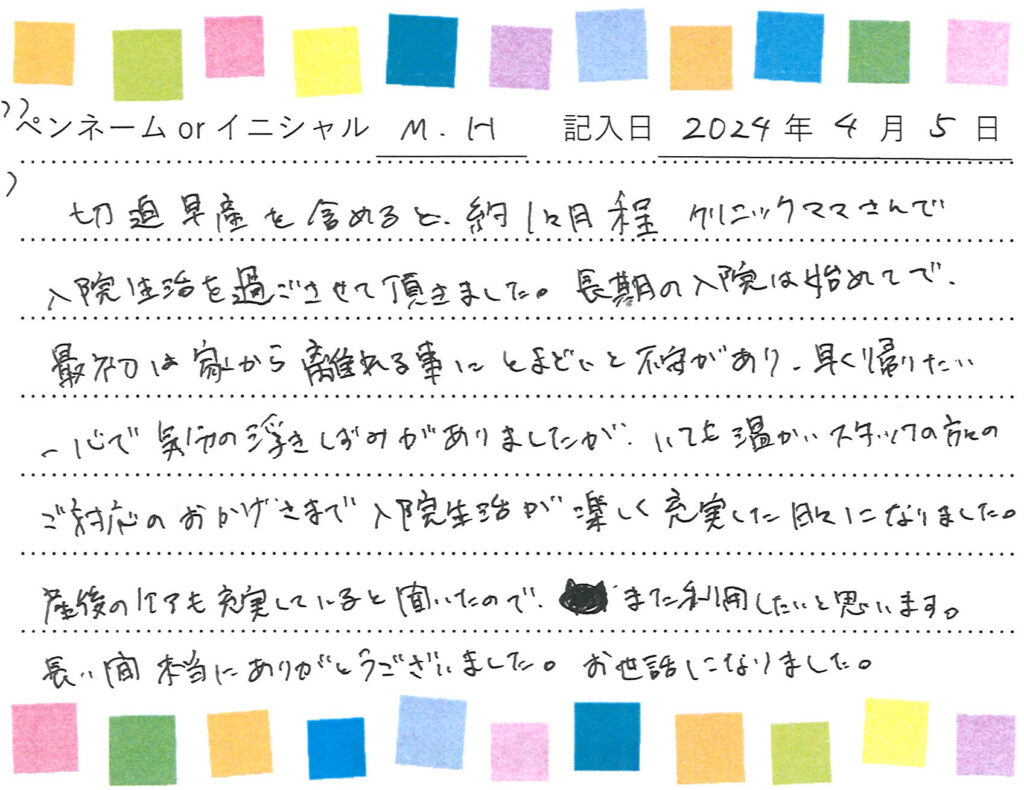 ペンネーム or イニシャル M.H 記入日 2024年4月5日
切迫早産を含めると、約1ヶ月程 クリニックママさんで
入院生活を過ごさせて頂きました。長期の入院は始めてで、
最初は家から離れる事にとまどいと不安があり、早く帰りたい
一心で気分の浮きしずみがありましたが、いつも温かいスタッフの方々の
ご対応のおかげさまで入院生活が楽しく充実した日々になりました。
産後のケアも充実していると聞いたので、また利用したいと思います。
長い間本当にありがとうございました。お世話になりました。